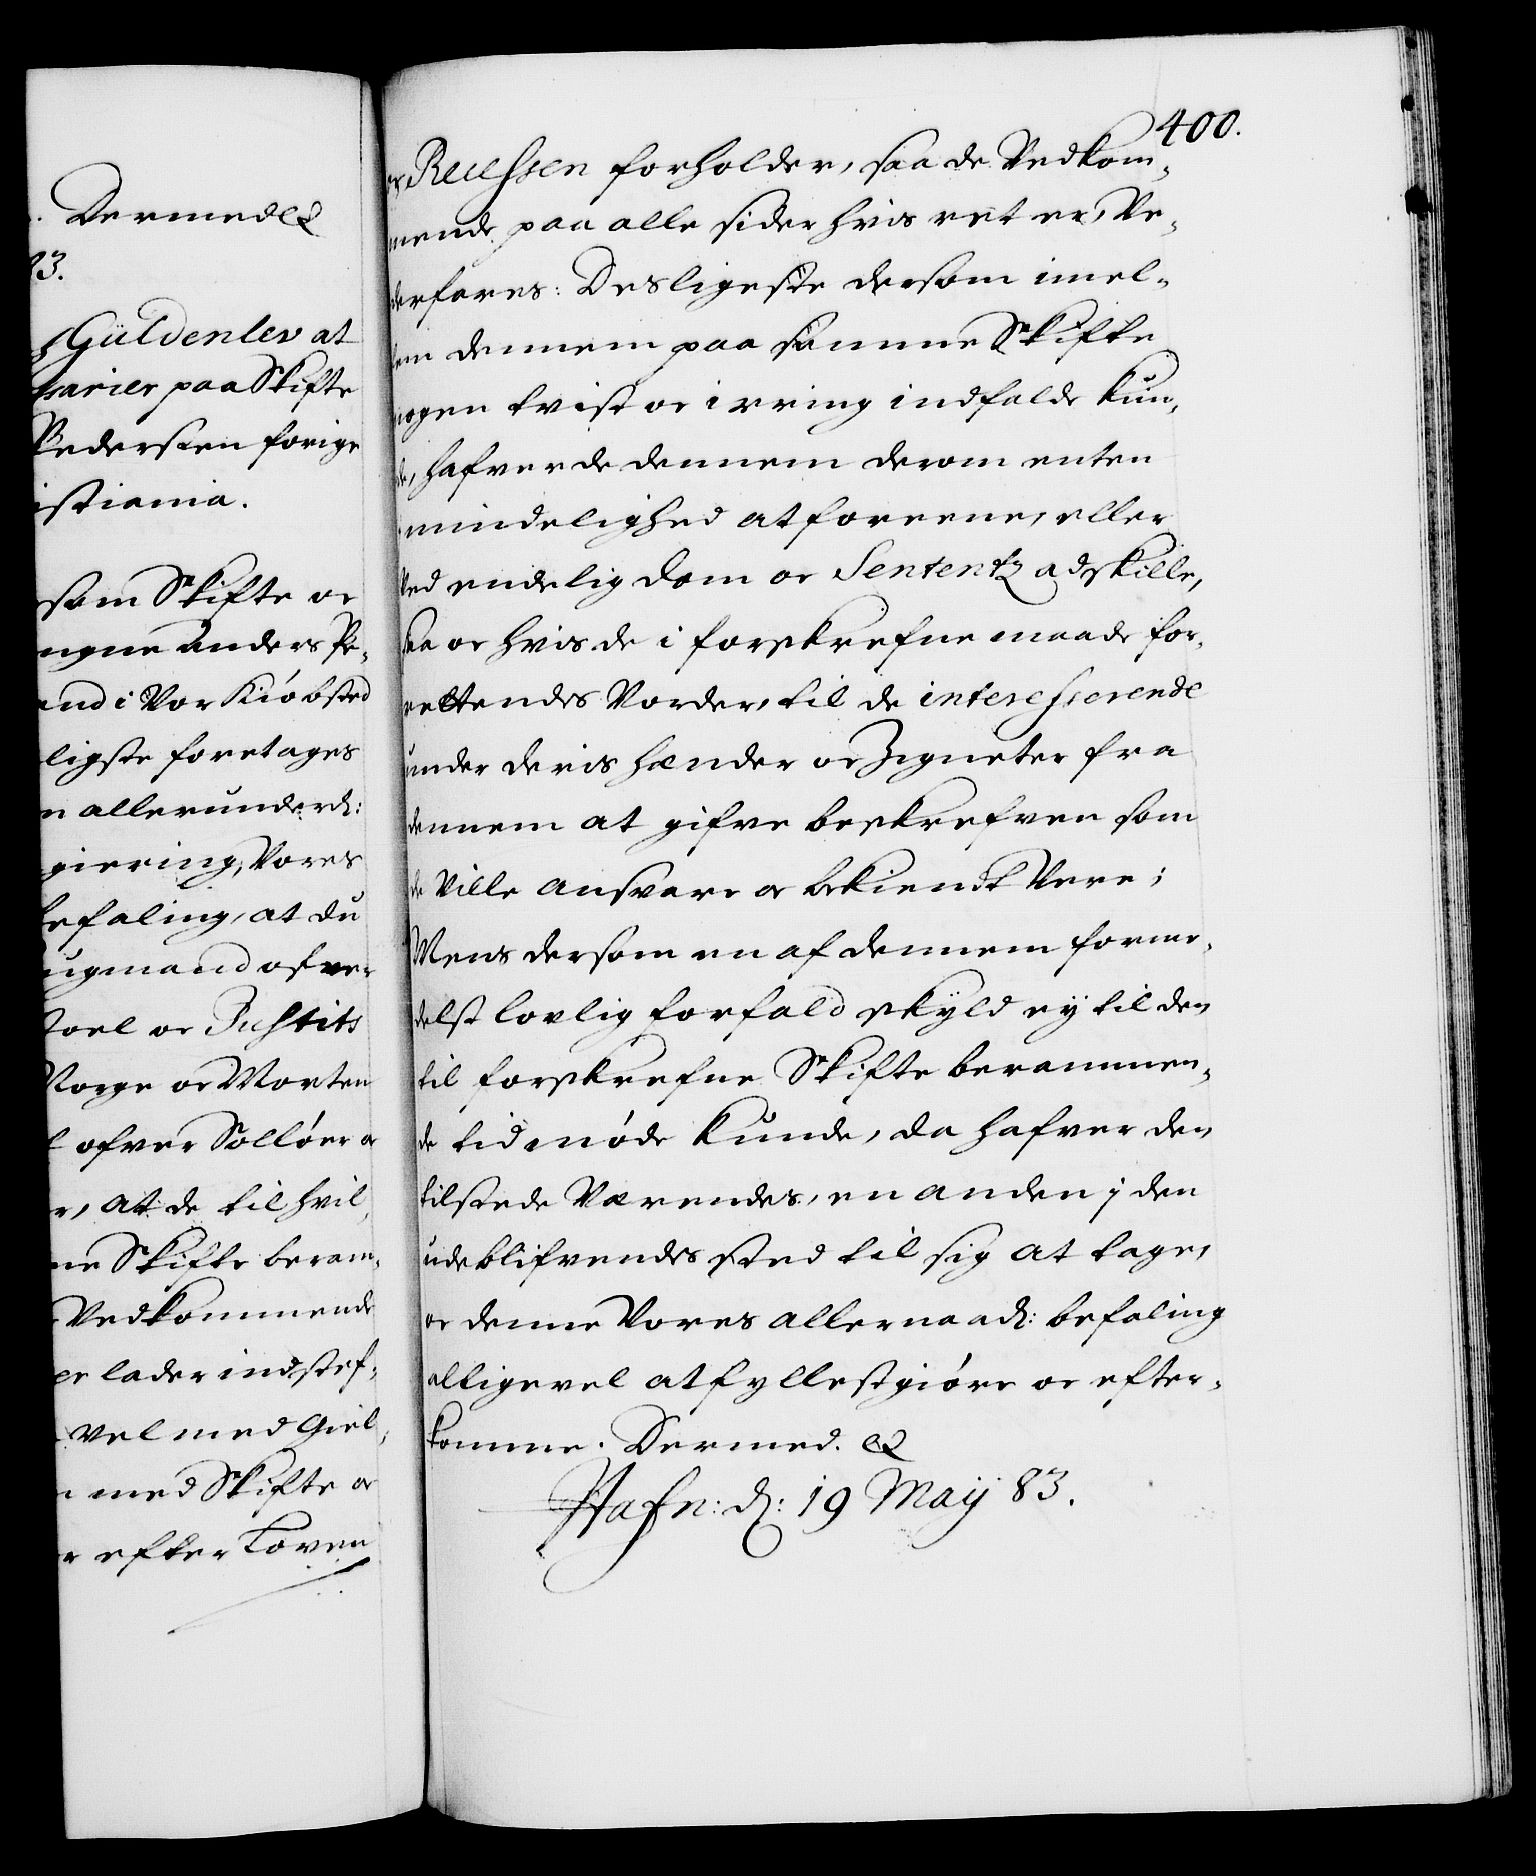 Dermed etc
83.
Güldenlev at
sarier paa Skifte
Pedersten forige
istiania.
som Skifte oc
ngne Anders Pe-
and i Vor Kiöbsted
ligste foretages
n allerunderd:
giering, Vores
befaling, at du
ugmand ofver
Justits
Norge oc Morten
ofver Sollöer oc
r, at de til hvil,
ne Skifte beram-
Vedkommende
er lader indstef-
vel med Giel,
med Skifte oc
r efter Loven
400.
os, Reuhsen forholder, saa de Vedkom-
mende paa alle sider hvis ret er, Ve-
derfares: Desligeste dersom imel-
lem dennem paa samme Skifte
nogen tvist oc irring indfalde kun-
de, hafver de dennem derom enten
mindelighed at foreene, eller
Ved endelig dom oc Sententz adskille,
saa oc hvis de i forskrefne maade for-
rettendes Vorder, til de interesserende
under deris hænder oc Zigneter fra
dennem at gifve beskrefven som
de Ville ansvare oc bekiendt Vere;
Mens dersom en af dennem forme-
delst lovlig forfald skyld ey til den
til forskrefne Skifte berammen-
de tid möde kunde, da hafver den
tilstede Værendes, en anden j den
udeblifvendes sted til sig at tage,
oc denne Vores allernaad: befaling
alligevel at fyllestgiöre oc efter-
komme. Dermed. etc
Hafn: d: 19 Maij 83.